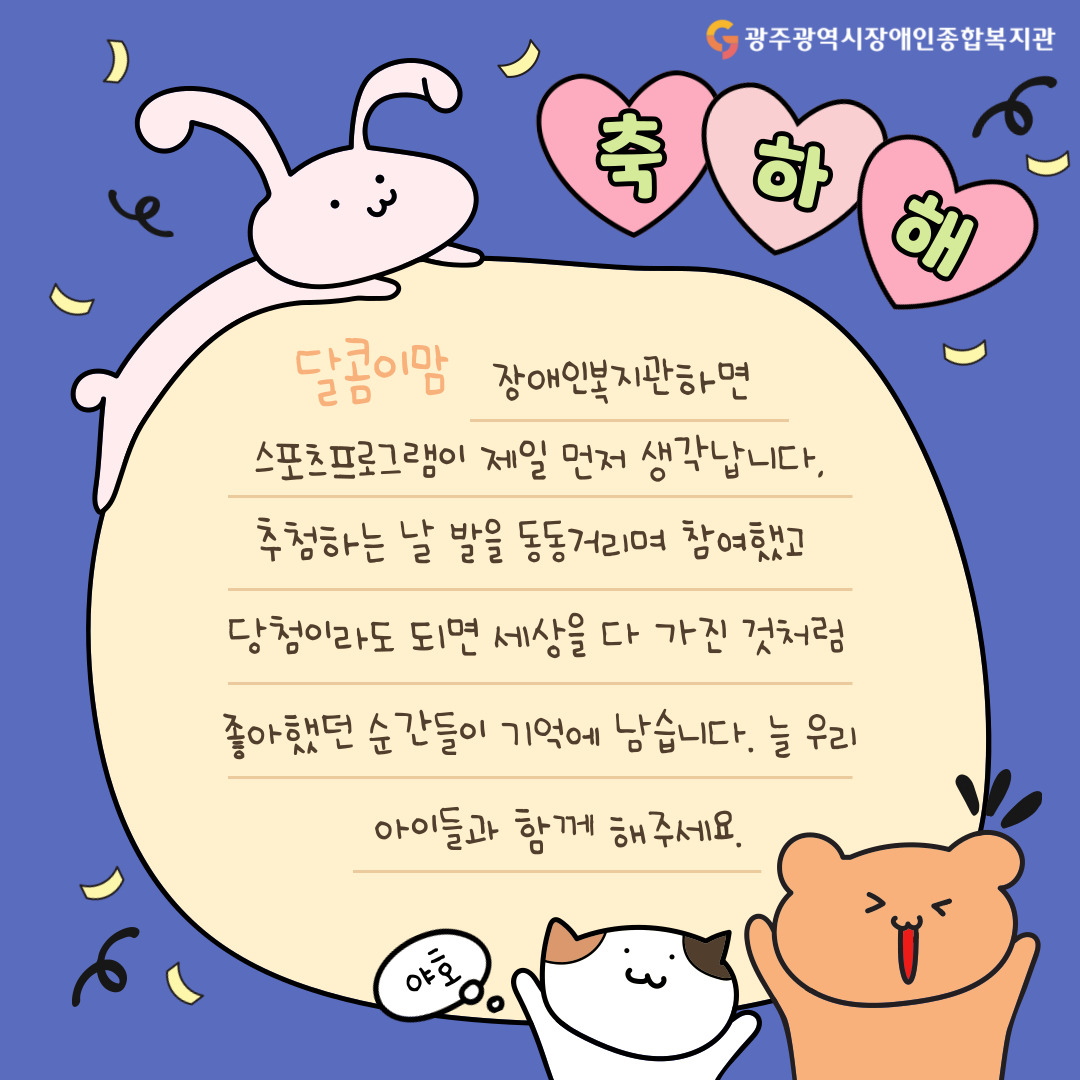 광주광역시장애인종합복지관
축하해
달콤이맘 장애인복지관하면
스포츠프로그램이 제일 먼저 생각납니다.
추첨하는 날 발을 동동거리며 참여했고
당첨이라도 되면 세상을 다 가진 것처럼
좋아했던 순간들이 기억에 남습니다. 늘 우리
아이들과 함께 해주세요.
야호